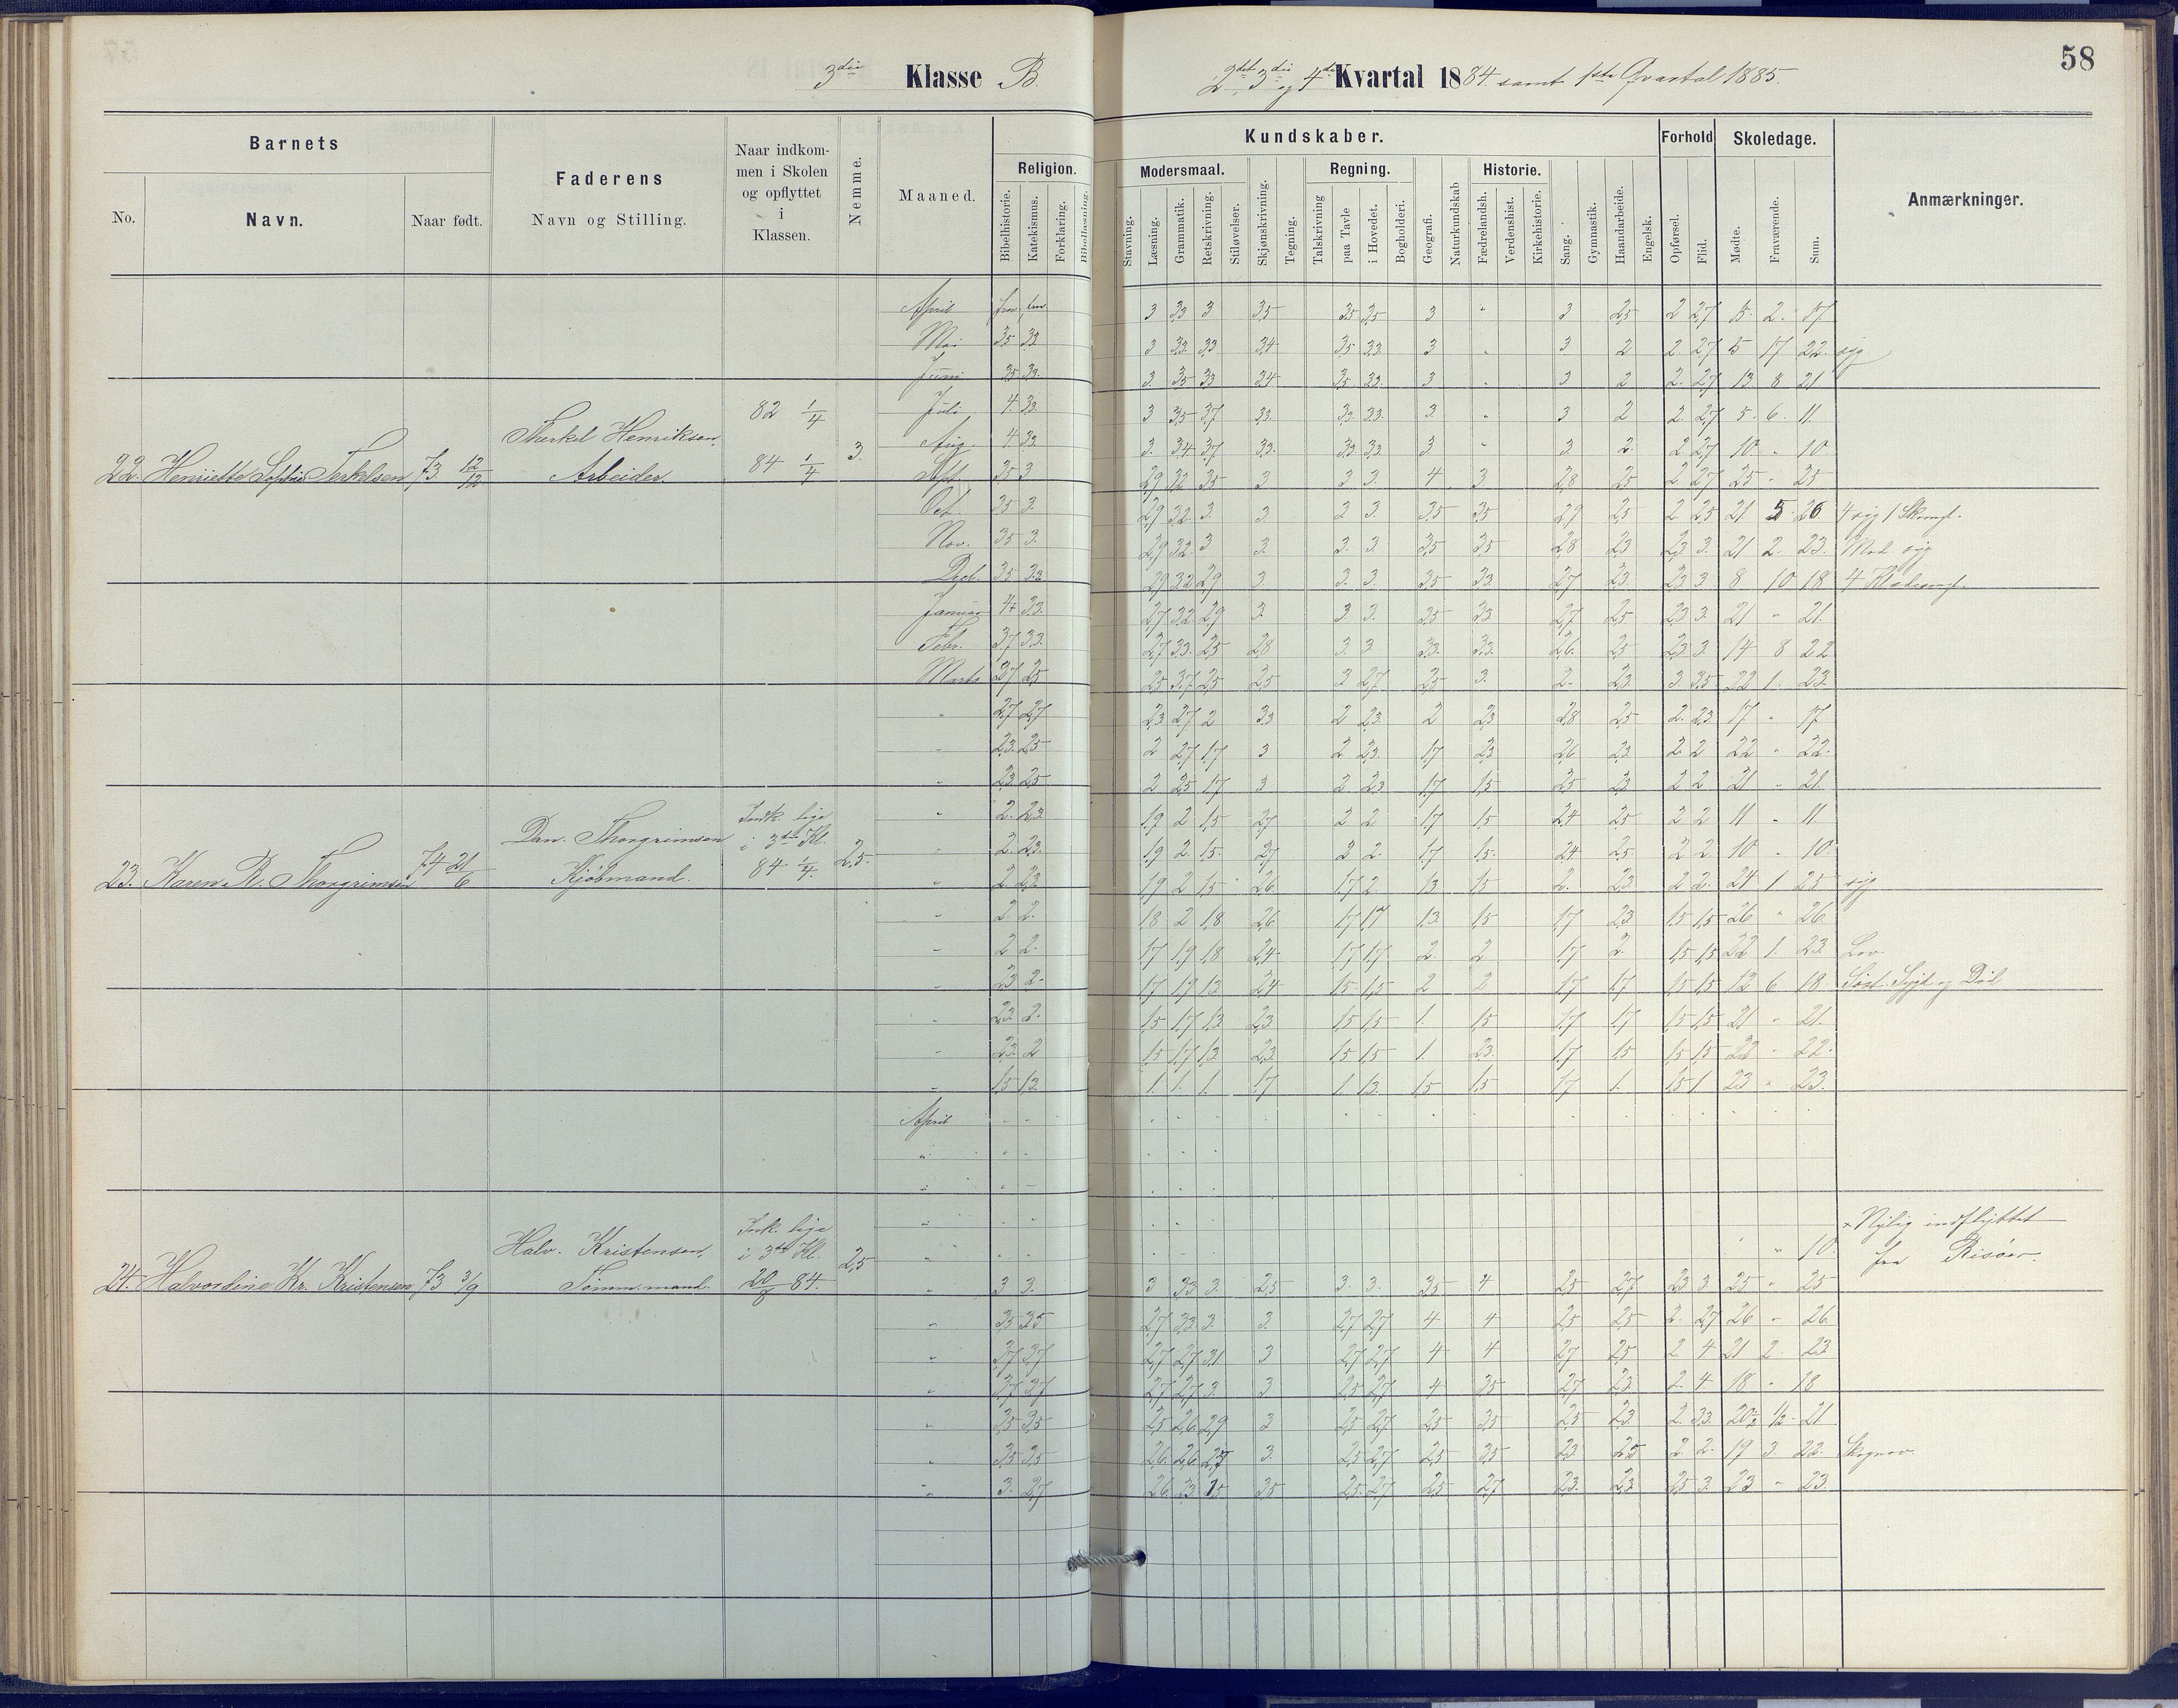 58
3die Klasse B.
2det 3die og 4de Kvartal 1884. samt 1ste Qvartal 1885.
Barnets
Faderens
Navn og Stilling.
Naar indkom-
men i Skolen
og opflyttet
i
Klassen.
Nemme.
Maaned.
Kundskaber.
Forhold
Skoledage.
Anmærkninger.
No.
Navn.
Naar født.
Religion.
Modersmaal.
Regning.
Historie.
Bibelhistorie.
Katekismus.
Forklaring.
Bibellæsning.
Stavning.
Læsning.
Grammatik.
Retskrivning.
Stiløvelser.
Skjønskrivning.
Tegning.
Talskrivning
paa Tavle
i Hovedet.
Bogholderi.
Geografi.
Naturkundskab
Fædrelandsh.
Verdenshist.
Kirkehistorie.
Sang.
Gymnastik.
Haandarbeide.
Engelsk.
Opførsel.
Flid.
Mødte.
Fraværende.
Sum.
22. Henriette Sofie Terkelsen 73 12/12
Therkel Henriksen,
Arbeider.
82 1/4
84 1/4
3.
April 3 3,3 3 3,5 3,5 3,5 3 " 3 2,5 2 2,7 15 2 17
Mai 3,5 3,3 3 3,3 3,3 3,4 3,5 3,3 3 " 3 2 2 2,7 5 17 22 syg
Juni 3,5 3,3 3 3,5 3,3 3,4 3,5 3,3 3 " 3 2 2 2,7 13 8 21
Juli 4 3,3 3 3,5 3,7 3,3 3,3 3,3 3 " 3 2 2 2,7 5 6 11
Aug. 4 3,3 3 3,4 3,7 3,3 3,3 3,3 3 " 3 2 2 2,7 10 " 10
Spt. 3,5 3 2,9 3,2 3,5 3 3 3 4 3 2,8 2,5 2 2,7 25 " 25
Oct. 3,5 3 2,9 3,2 3 3 3 3 3,5 3,5 2,9 2,5 2 2,5 21 5 26 4 syg 1
Nov. 3,5 3 2,9 3,2 3 3 3 3 3,5 3,5 2,8 2,3 2,3 3 21 2 23 Mod. syg
Decb. 3,5 3,3 2,9 3,2 2,9 3 3 3 3,5 3,3 2,7 2,3 2,3 3 8 10 18
Januar 4 3,3 2,7 3,2 2,9 3 3 3 3,5 3,3 2,7 2,5 2,3 3 21 " 21
Febr. 3,7 3,3 2,7 3,3 2,5 2,8 3 3 3,3 3,3 2,6 2,5 2,3 3 14 8 22
Marts 2,7 2,5 2,5 3,7 2,5 2,5 3 2,7 2,5 3 2 2,3 3 3,5 22 1 23
23. Karen R. Thorgrimsen 74 21/6
Dan. Thorgrimsen
Kjøbmand.
Indk. lige
i 3die Kl.
84 1/4.
2,5.
" 2,7 2,7 2,3 2,7 2 3,3 2 2,3 2 2,3 2,8 2,5 2 2,3 17 " 17
" 2,3 2,5 2 2,7 1,7 3 2 2,3 1,7 2,3 2,6 2,3 2 2 22 " 22
" 2,3 2,5 2 2,5 1,7 3 2 2,3 1,7 1,5 2,5 2,3 2 2 21 " 21
" 2 2,3 1,9 2 1,5 2,7 2 2 1,7 1,5 2,4 2,5 2 2 11 " 11
" 2 2,3 1,9 2 1,5 2,7 2 2 1,7 1,5 2,4 2,5 2 2 10 " 10
" 2 2,3 1,9 2 1,5 2,6 1,7 2 1,3 1,5 2 2,3 2 2 24 1 25 syg
" 2 2 1,8 2 1,8 2,6 1,7 1,7 1,3 1,5 1,7 2,3 1,5 1,5 26 " 26
" 2 2 1,7 1,9 1,8 2,4 1,7 1,7 2 2 1,7 2 1,5 1,5 22 1 23 Lov
" 2,3 2 1,7 1,9 1,3 2,4 1,5 1,5 2 2 1,7 1,7 1,5 1,5 12 6 18
" 2,3 2 1,5 1,7 1,3 2,3 1,5 1,5 1 1,5 1,7 1,7 1,5 1,5 21 " 21
" 2,3 2 1,5 1,7 1,3 2,3 1,5 1,5 1 2,3 1,7 1,5 1,5 1,5 22 " 22
" 1,5 1,3 1 1 1 1,7 1 1,3 1,5 1,5 1,7 1 1,5 1 23 " 23
24. Halvordine Kr. Kristensen 73 3/9
Halv. Kristensen,
Tømmermand.
Indk. lige
i 3die Kl.
20/8 84.
2,5
April
× Nylig indflyttet
fra Risøer.
" " 10
" 3 3 3 3,3 3 2,5 3 3 3,5 4 2,5 2,7 2,3 3 25 " 25
" 3,5 3,5 2,7 3,3 3 3 2,7 2,7 4 4 2,5 2,5 2 2,7 26 " 26
" 3,7 3,7 2,7 2,7 3,1 3 2,7 2,7 4 4 2,7 2,5 2 4 21 2 23
" 3,7 3,7 2,7 2,7 3 3 2,5 2,7 4 3,5 2,7 2,3 2 4 18 " 18
" 3,5 3,5 2,5 2,6 2,9 3 2,5 2,7 2,5 3,5 2,5 2,3 2 3,3 20½ ½ 21
" 3,5 3,5 2,6 2,6 2,5 3 2,5 2,7 2,5 3,5 2,3 2,5 2 2 19 3 22
" 3 2,7 2,6 3,3 1,5 3,5 2,5 2,7 2,5 2,7 2,3 2,3 2,5 3 23 " 23